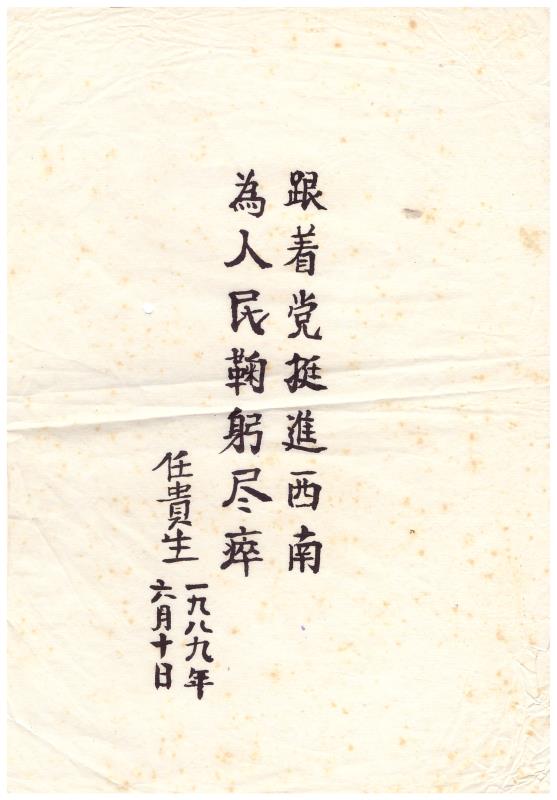 跟着党挺進西南
為人民鞠躬尽瘁
任貴生
一九八九年
六月十日